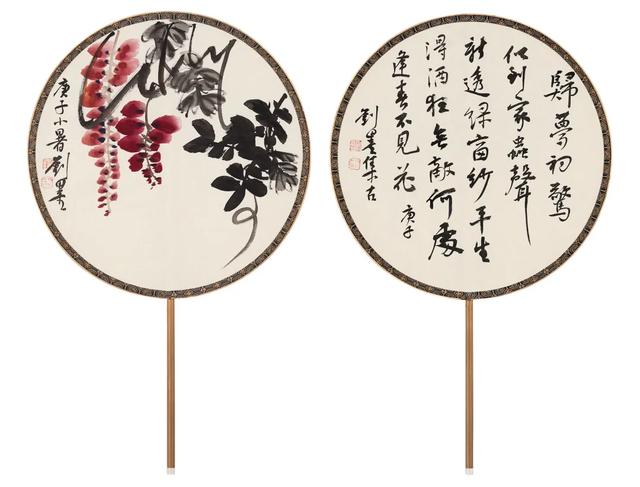 庚子小暑劉墨
歸夢初驚
似到家蟲聲
新透綠窗紗平生
得酒狂無敵何處
逢春不見花 庚子
劉墨集古